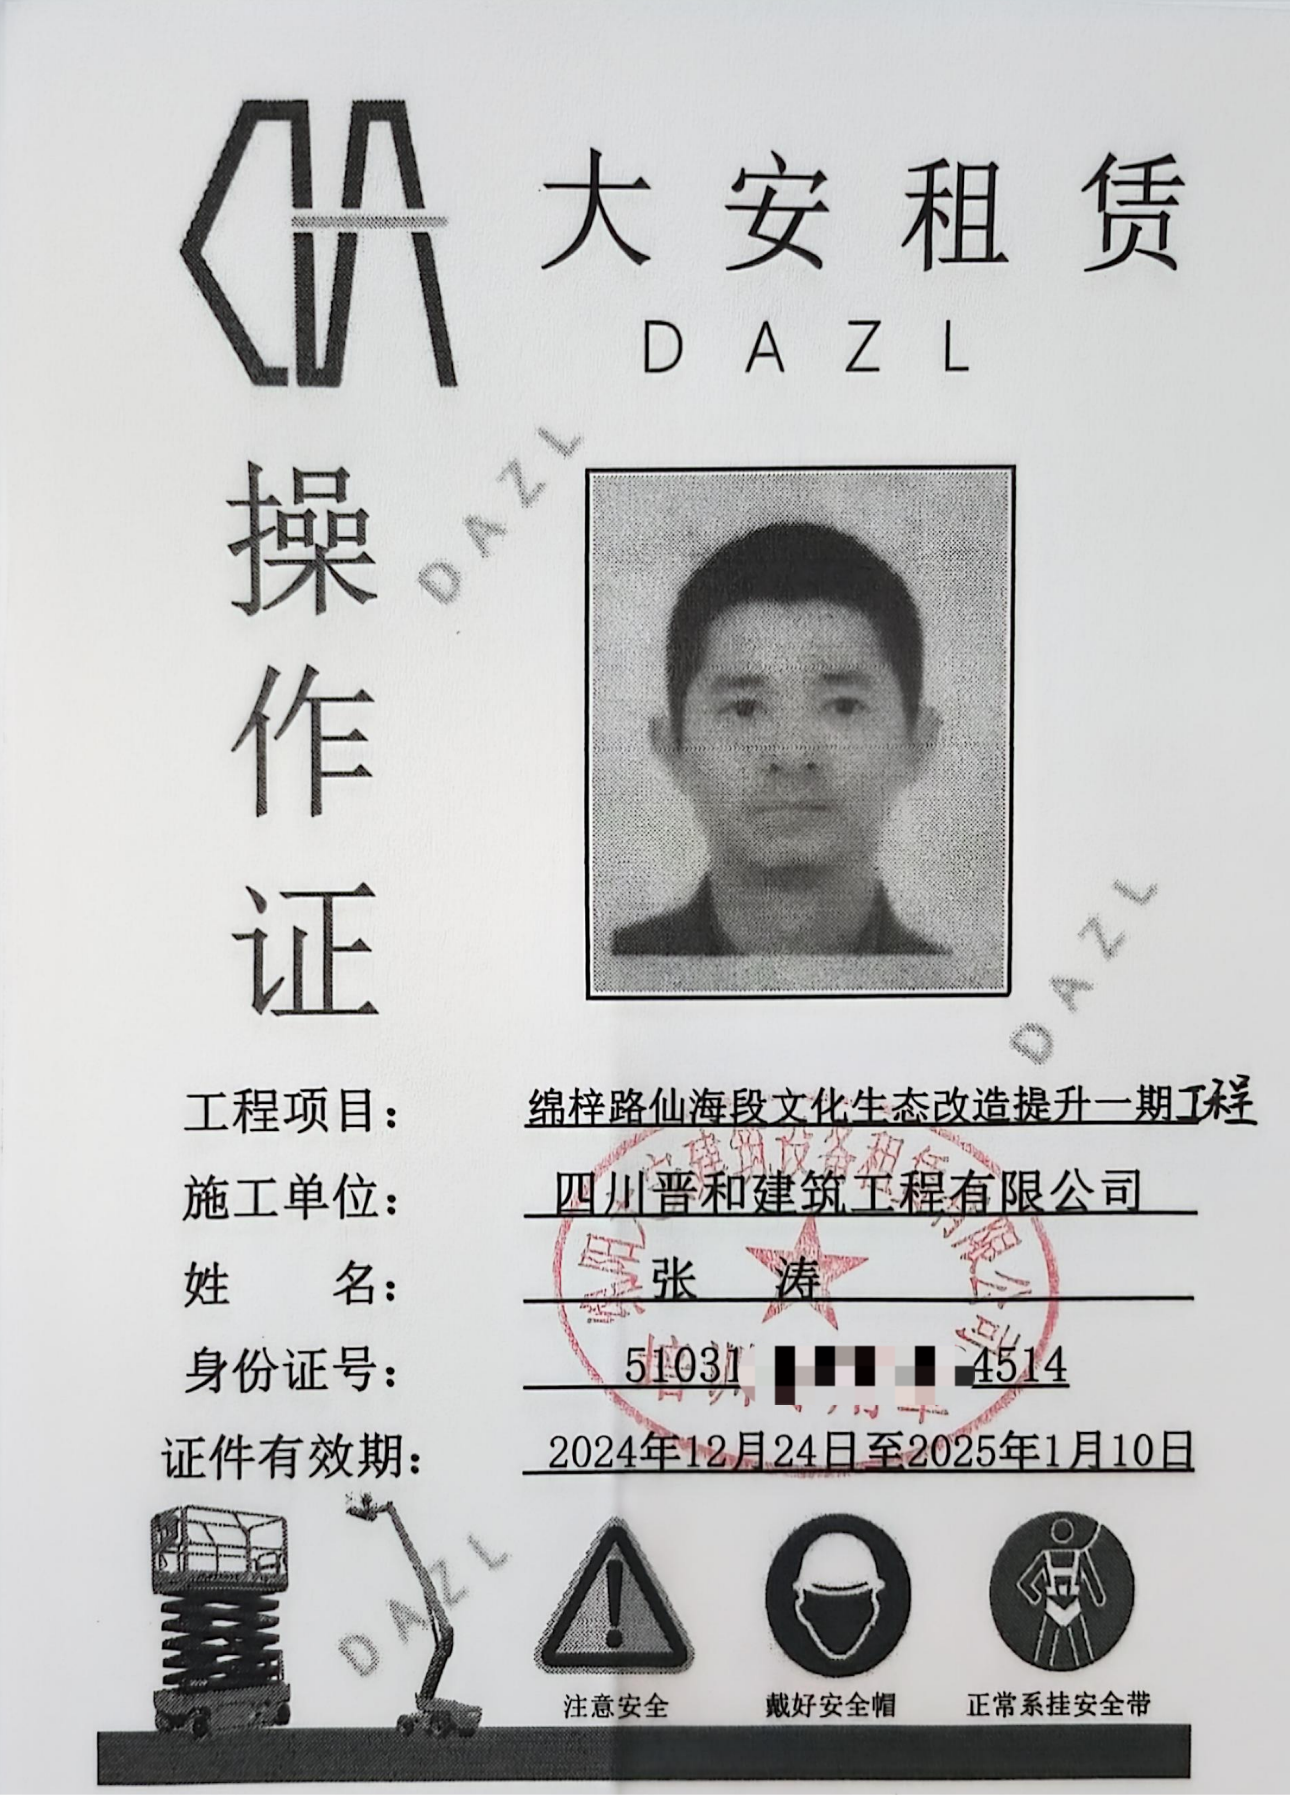 大安租赁
DAZL
操作证
DAZL
DAZL
工程项目: 绵梓路仙海段文化生态改造提升一期工程
施工单位: 四川晋和建筑工程有限公司
姓 名: 张 涛
身份证号: 51031 4514
证件有效期: 2024年12月24日至2025年1月10日
建筑设备租赁有限公司
培训专用章
DAZL
注意安全 戴好安全帽 正常系挂安全带